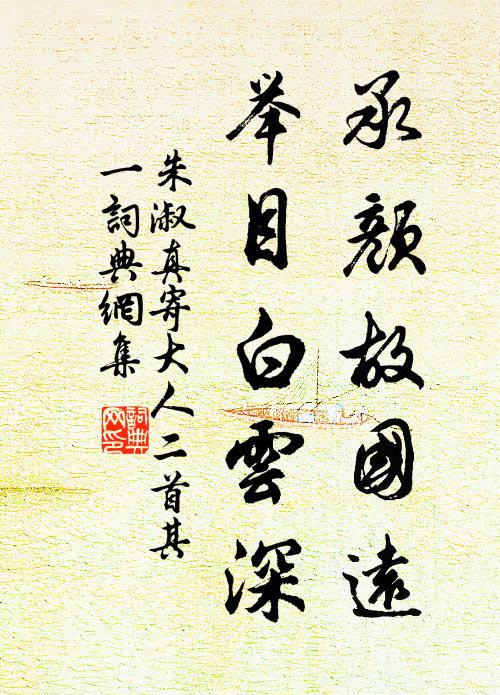 承顏故國遠
举目白雲深
朱淑真寄大人二首其
一詞典網集
詞典
网印